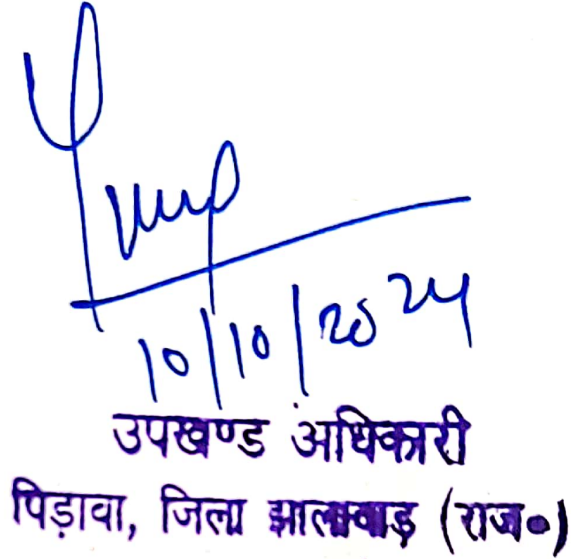 10/10/2024
उपखण्ड अधिकारी
पिड़ावा, जिला झालावाड़ (राज०)